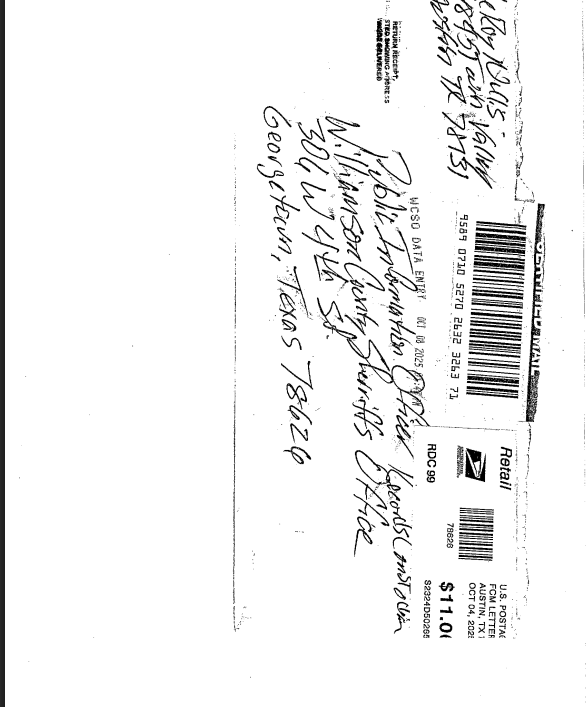 Mills -
TX 78731
RETURN RECEIPT,
STED SHOWING ADDRESS
WHERE DELIVERED
CERTIFIED MAIL
9589 0710 5270 2632 3263 71
Retail
RDC 99
78626
U.S. POSTA
FCM LETTER
AUSTIN, TX
OCT 04, 202
$11.0
S2324D50265
WCSO DATA ENTRY OCT 08 2025
Public Information Officer Records Custodian
Williamson County Sheriff's Office
304 W 4th St.
Georgetown, Texas 78626